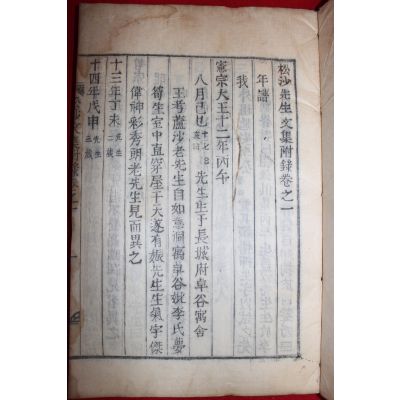 松沙先生文集附錄卷之一
年譜
我
憲宗大王十二年丙午
八月己巳十七日亥時先生生于長城府卓谷寓舍
王考蘆沙老先生自如意洞寓卓谷妣李氏夢
筍生室中直穿屋于天遂有娠先生生氣宇傑
偉神彩秀朗老先生見而異之
十三年丁未先生二歲
十四年戊申先生三歲